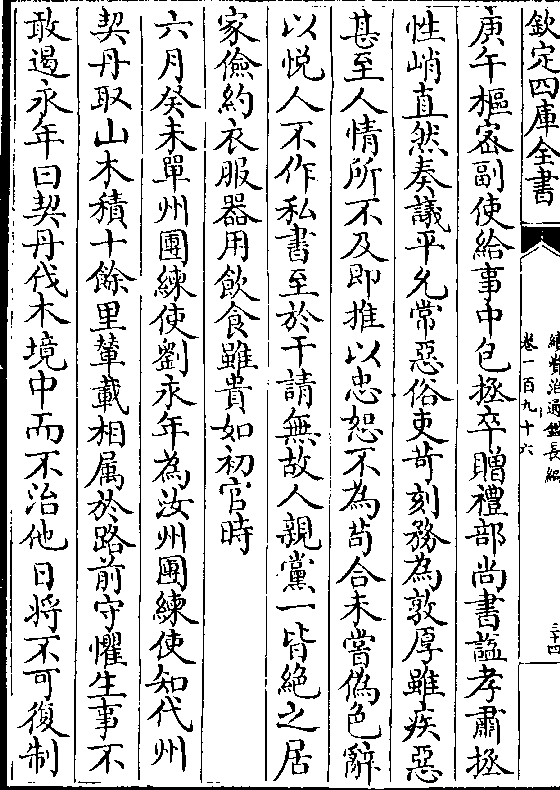 欽定四庫全書
續資治通鑑長編
卷一百九十六
三十四
庚午樞密副使給事中包拯卒贈禮部尚書諡孝肅拯
性峭直然奏議平允常惡俗吏苛刻務為敦厚雖疾惡
甚至人情所不及即推以忠恕不為苟合未嘗偽色辭
以悦人不作私書至於干請無故人親黨一皆絶之居
家儉約衣服器用飲食雖貴如初官時
六月癸未單州團練使劉永年為汝州團練使知代州
契丹取山木積十餘里輦載相属於路前守懼生事不
敢遏永年曰契丹伐木境中而不治他日将不可復制